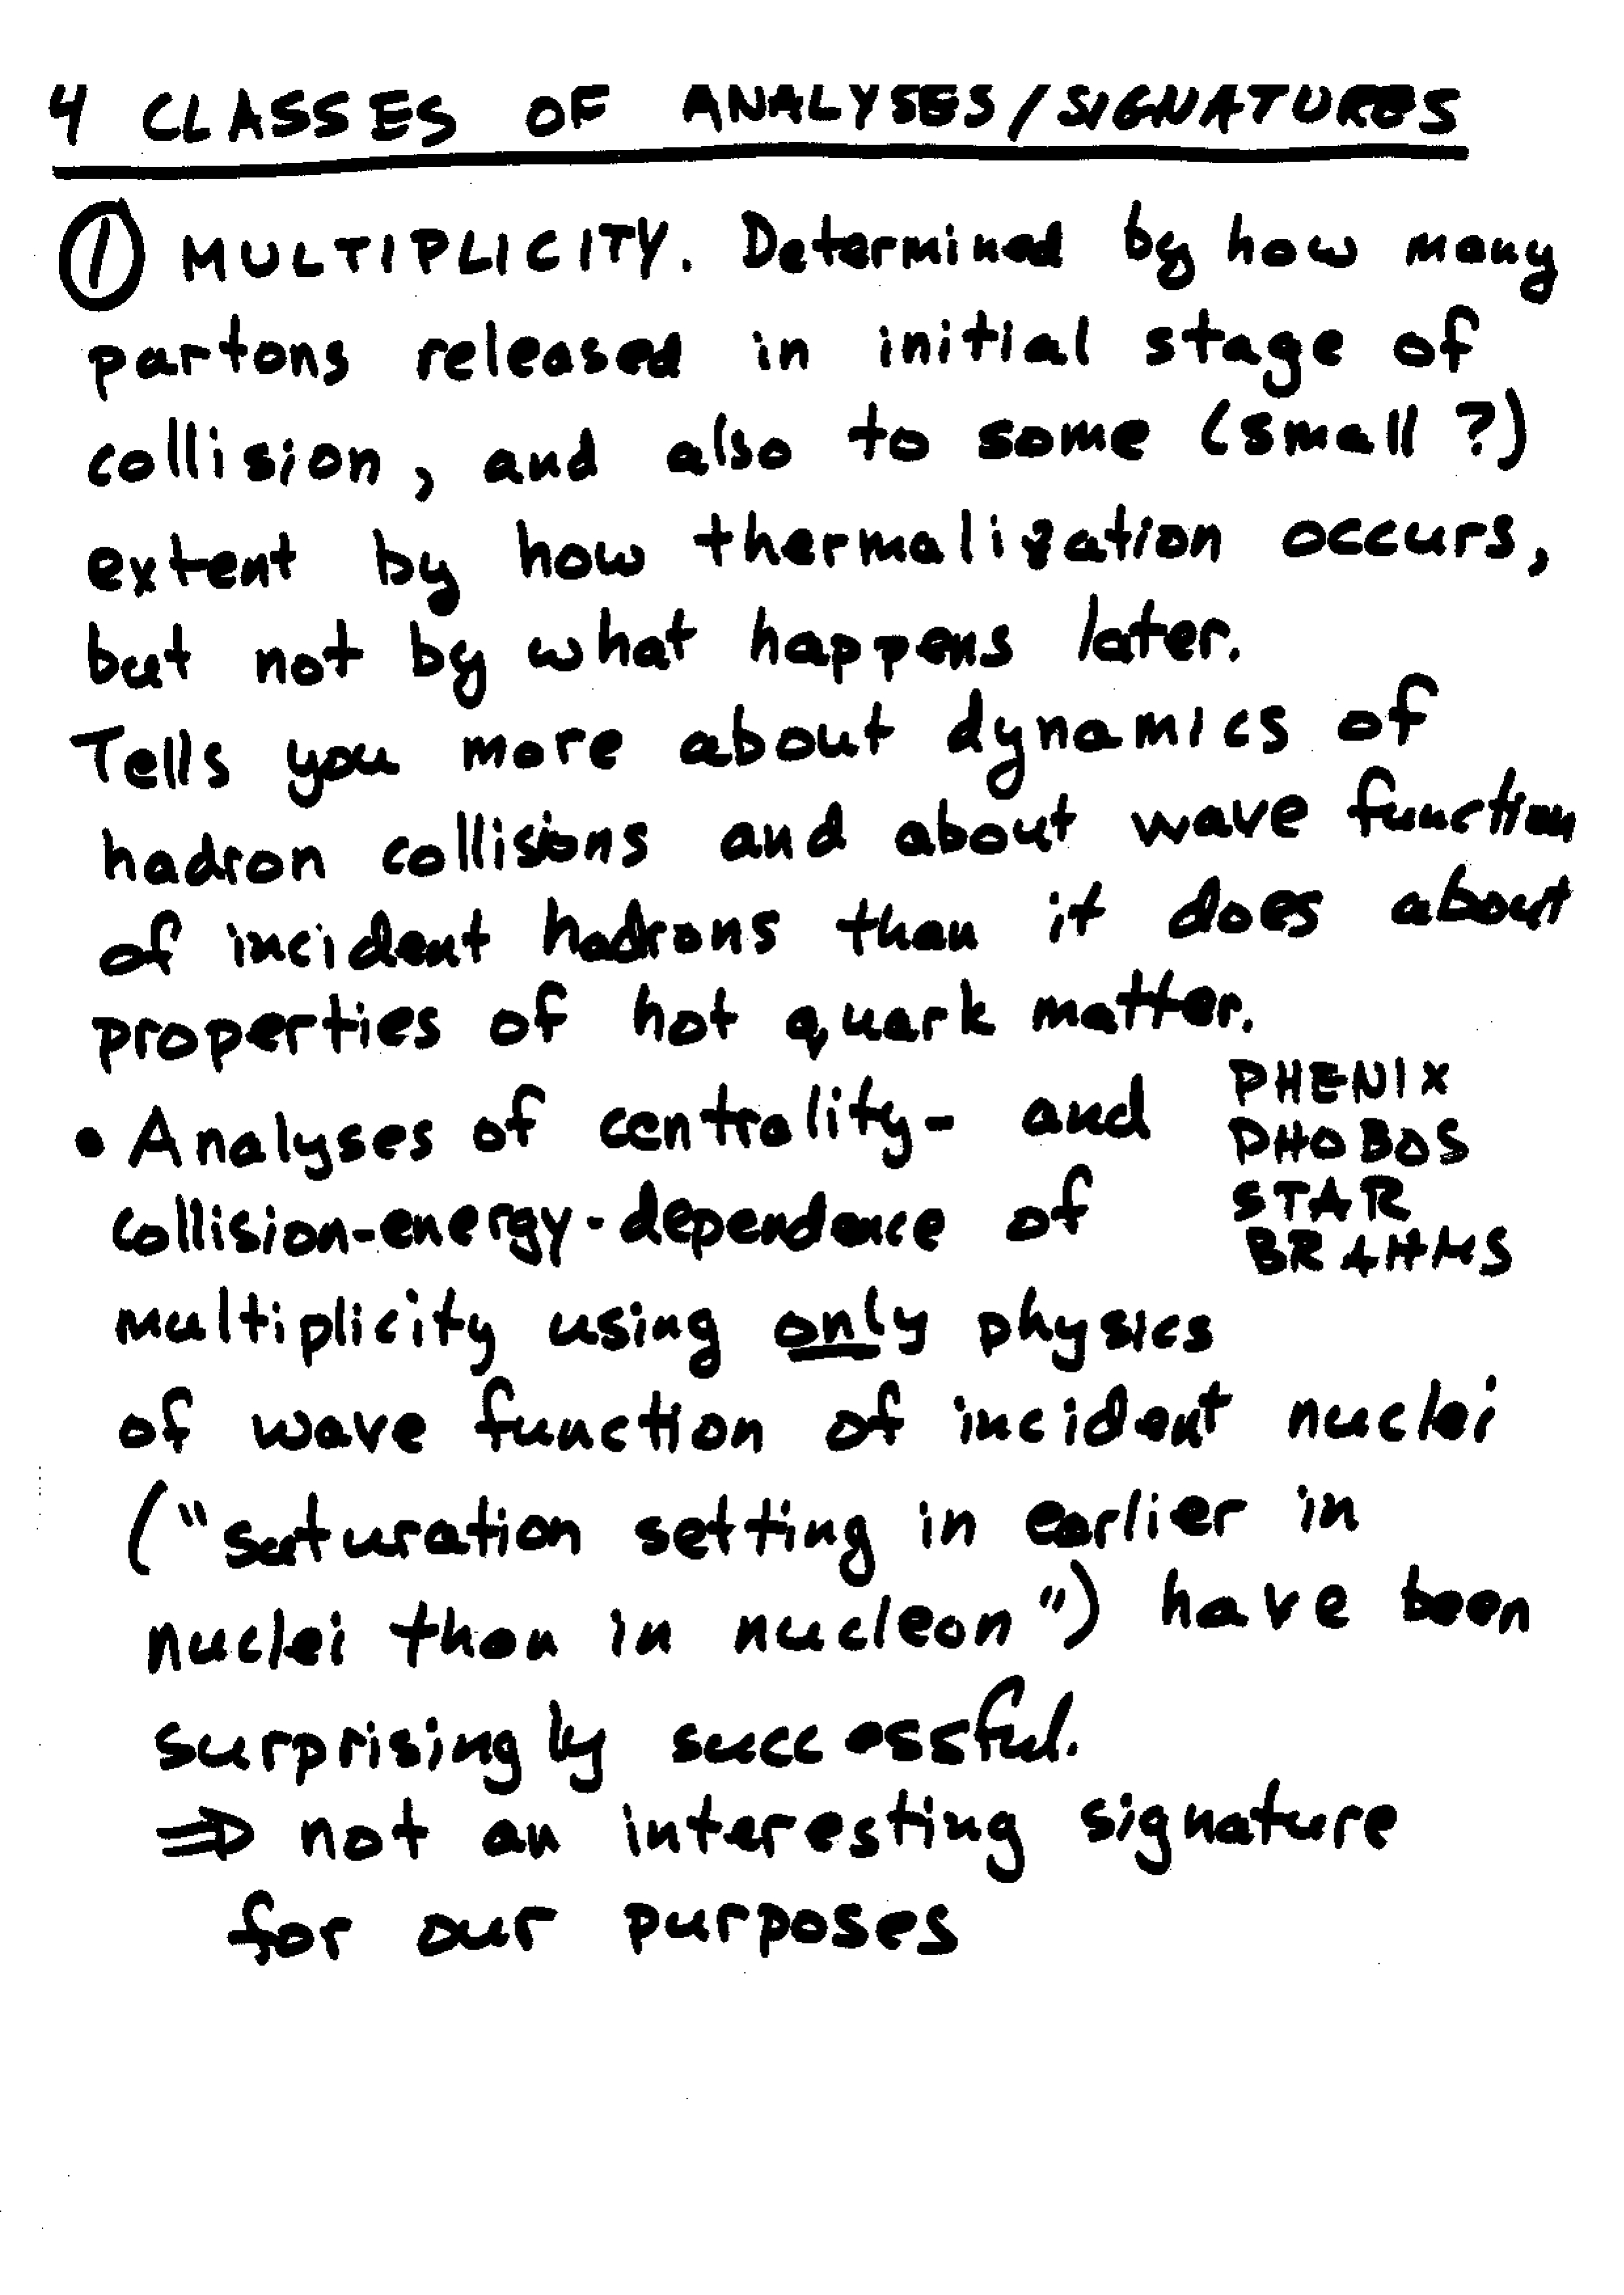 4 CLASSES OF ANALYSES/SIGNATURES
① MULTIPLICITY. Determined by how many
partons released in initial stage of
collision, and also to some (small?)
extent by how thermalization occurs,
but not by what happens later.
Tells you more about dynamics of
hadron collisions and about wave function
of incident hadrons than it does about
properties of hot quark matter.
• Analyses of centrality- and
PHENIX
PHOBOS
STAR
BRAHMS
collision-energy-dependence of
multiplicity using only physics
of wave function of incident nuclei
("saturation setting in earlier in
nuclei than in nucleon") have been
surprisingly successful.
⇒ not an interesting signature
for our purposes